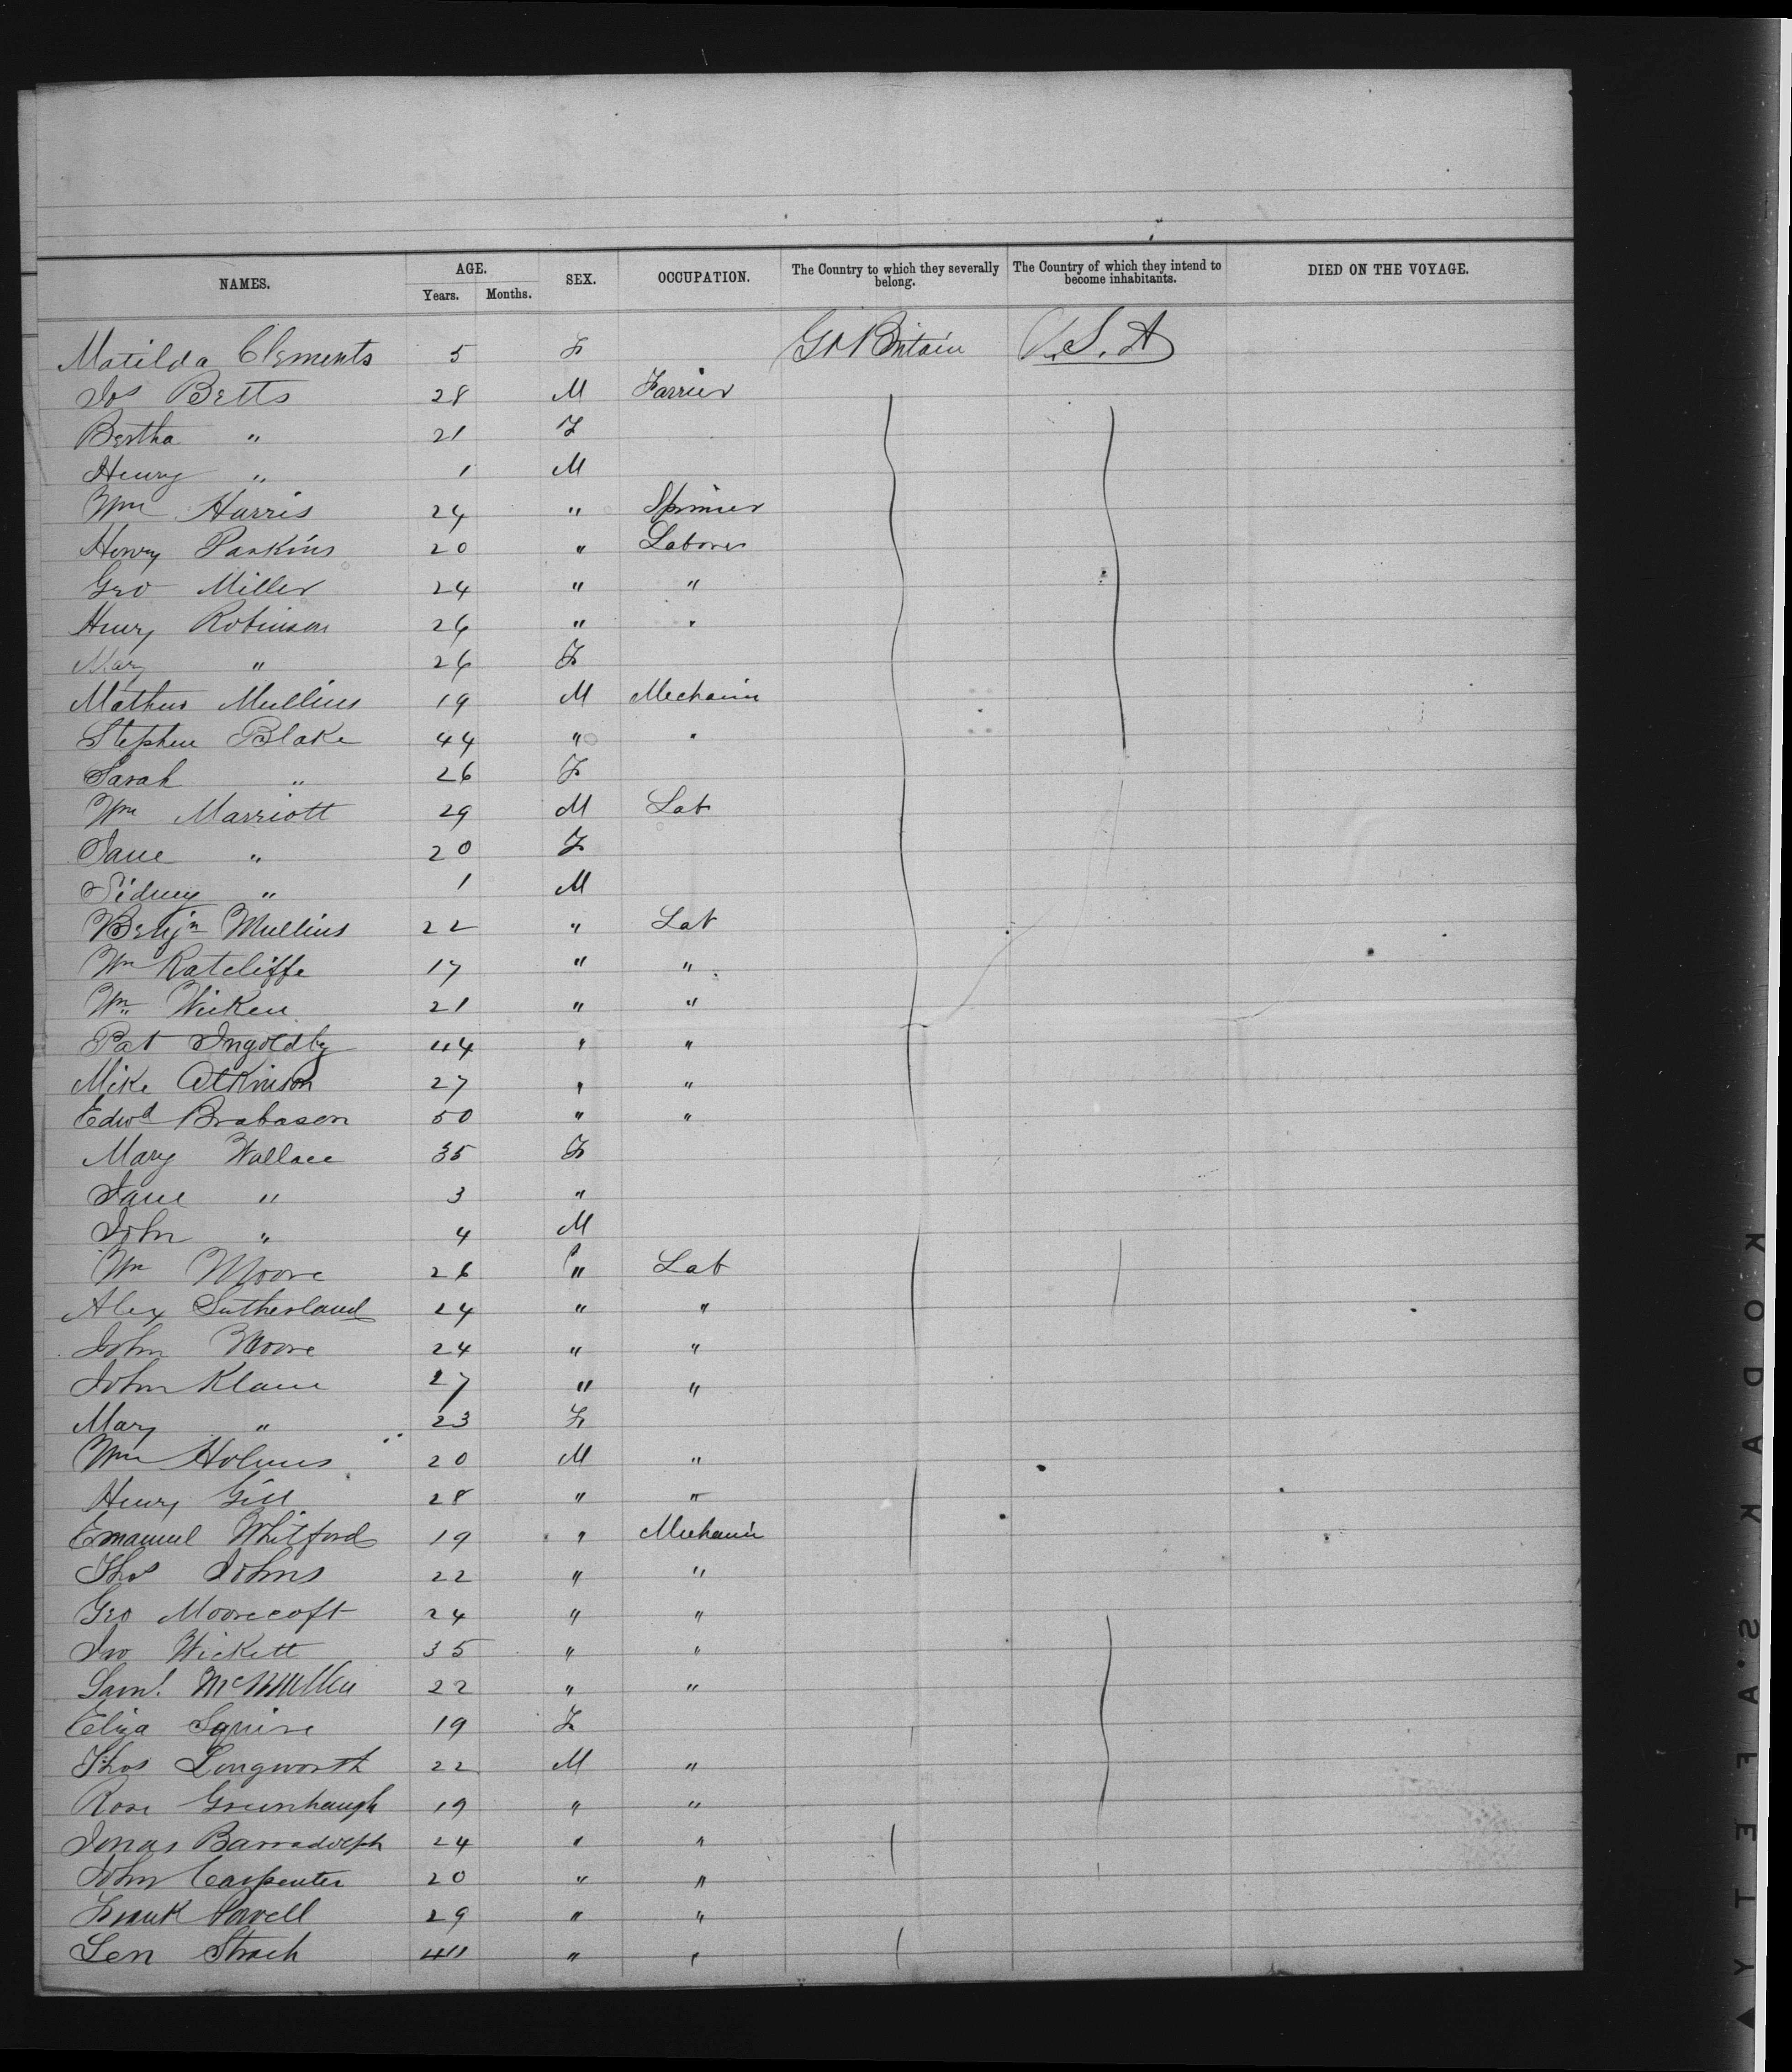 NAMES. AGE. SEX. OCCUPATION. The Country to which they severally belong. The Country of which they intend to become inhabitants. DIED ON THE VOYAGE.
Years. Months.
Matilda Clements 5 F Gt Britain U.S.A
Jos Betts 28 M Farrier
Bertha " 21 F
Henry " 1 M
Wm Harris 24 " Spinner
Henry Parkins 20 " Laborer
Geo Miller 24 " "
Henry Robinson 26 " "
Mary " 26 F
Mathew Mullins 19 M Mechanic
Stephen Blake 44 " "
Sarah " 26 F
Wm Marriott 29 M Lab
Jane " 20 F
Sidney " 1 M
Benjn Mullins 22 " Lab
Wm Ratcliffe 17 " "
Wm Wicken 21 " "
Pat Ingoldby 44 " "
Mike Atkinson 27 " "
Edwd Brabason 50 " "
Mary Wallace 35 F
Jane " 3 "
John " 4 M
Wm Moore 26 " Lab
Alex Sutherland 24 " "
John Moore 24 " "
John Klane 27 " "
Mary " 23 F
Wm Holmes 20 M "
Henry Gill 28 " "
Emanuel Whitford 19 " Mechanic
Thos Johns 22 " "
Geo Moorecoft 24 " "
Jno Wickett 35 " "
Saml McMullen 22 " "
Eliza Squire 19 F
Thos Longworth 22 M "
Rose Greenhaugh 19 " "
Jonas 24 " "
John Carpenter 20 " "
Frank Powell 29 " "
Len 40 " "
KODAK SAFETY